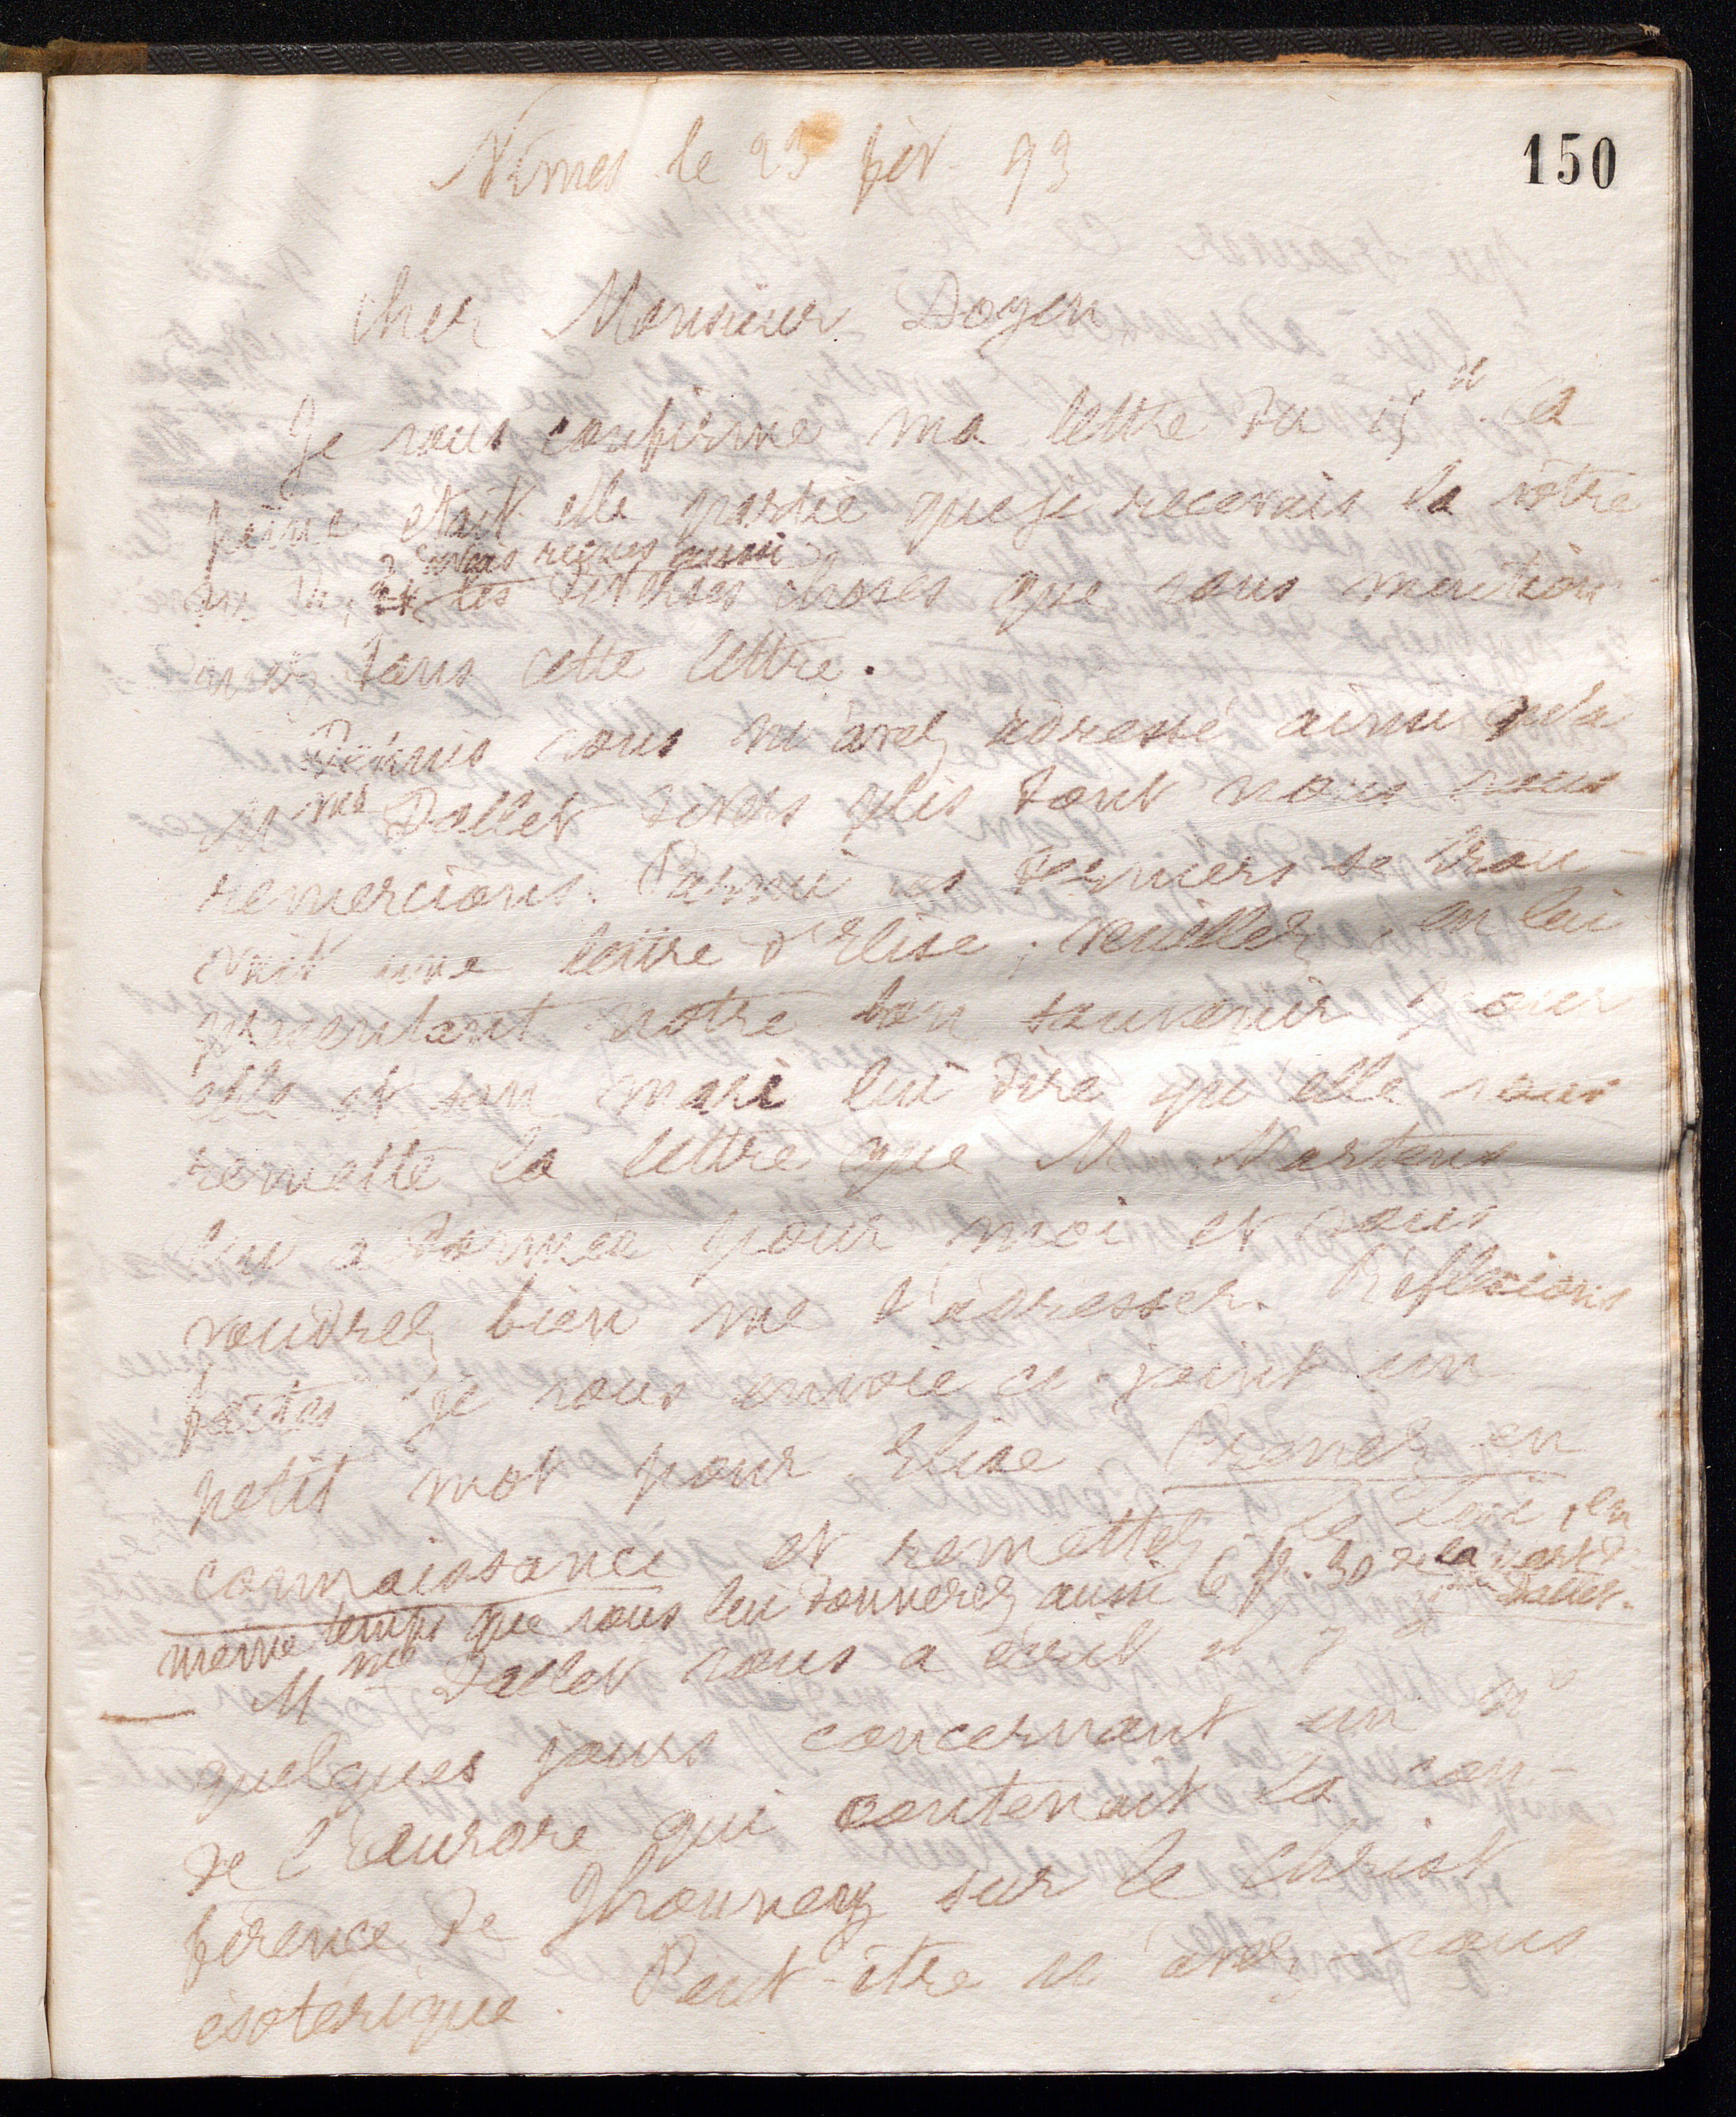 150
Nimes le 23 fév 93
Cher Monsieur Doyen
Je vous confirme ma lettre du 15 ct. A
peine était elle partie que je recevais la votre
reçues aussi
les diverses choses que vous mention-
nez dans cette lettre.
Depuis vous m'avez adressé ainsi qu'à
Mme Dallet divers plis dont nous vous
remercions. Parmi ces derniers se trou-
vait une lettre d'Elise ; veuillez, en lui
présentant notre bon souvenir pour
elle et son mari lui dire qu'elle vous
remette la lettre que M. Martens
lui a donnée pour moi et vous
voudrez bien me l'adresser. Réflexions
faites je vous envoie ci-joint un
petit mot pour Elise. Prenez en
connaissance et remettez-le lui, en
même temps que vous lui donnerez aussi 6 fr. 30 de la part de Mme Dallet.
Mme Dallet vous a écrit il y a
quelques jours concernant un No
de l'Aurore qui contenait la con-
férence de Jhouney sur le Christ
ésotérique. Peut-être n'avez-vous